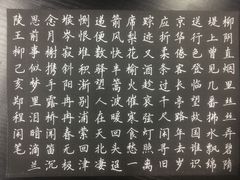 柳阴直烟里丝丝弄碧隋
堤上曾见几番拂水飘绵
送行色登临望故国谁识
京华倦客长亭路年去岁来
应折柔条过千尺闲寻旧
踪迹又酒趁哀弦灯照离
席梨花榆火催寒食愁一
箭风快半篙波暖回头迢
递便数驿望人在天北凄
恻恨堆积渐别浦萦回津
堠岑寂斜阳冉冉春无极
念月榭携手露桥闻笛沉
思前事似梦里泪暗滴兰
陵王柳己亥郑程闲笔